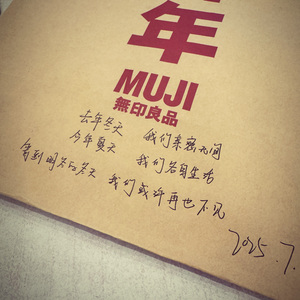 年
MUJI
無印良品
去年冬天 我们亲密无间
今年夏天 我们各自生活
等到明年冬天 我们或许再也不见
2025.7.